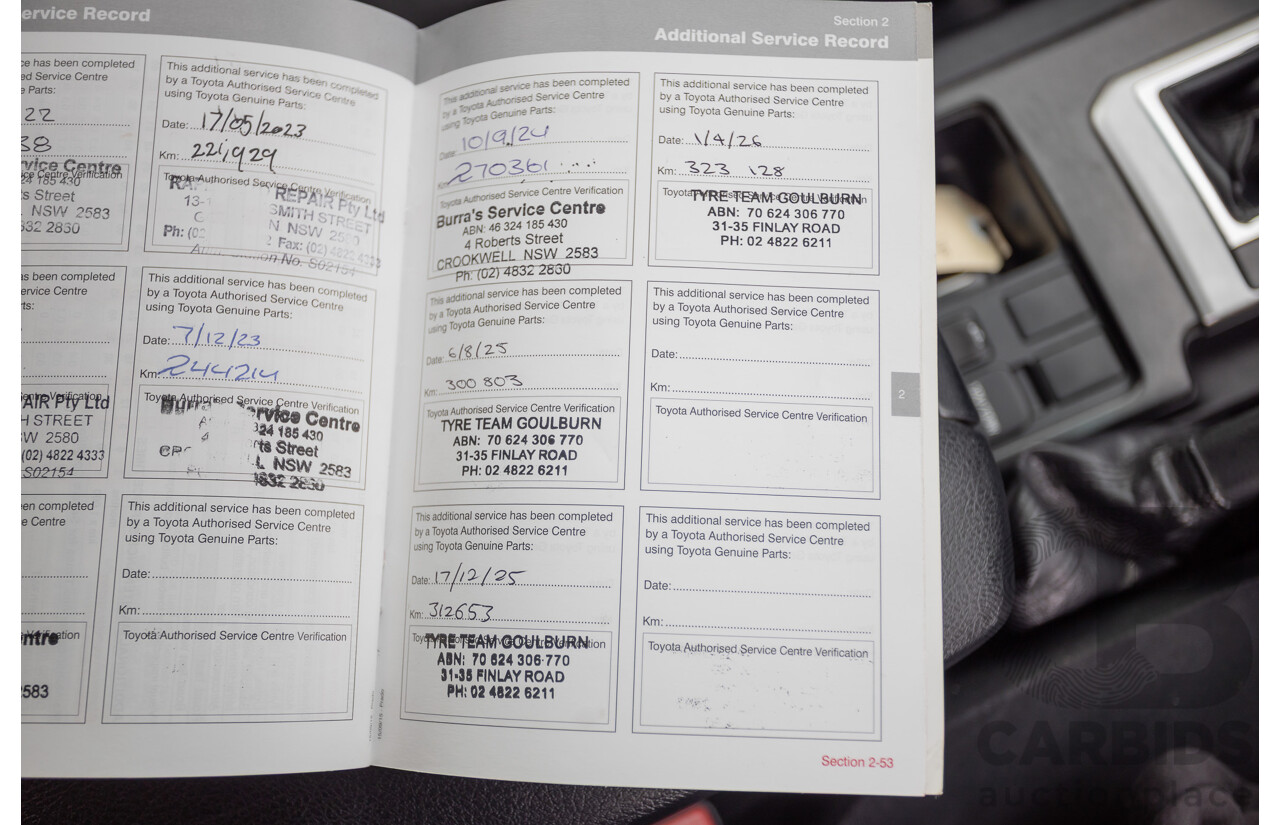 ervice Record
ce has been completed
ed Service Centre
e Parts:
22
38
rvice Centre
24 185 430
s Street
NSW 2583
332 2830
This additional service has been completed
by a Toyota Authorised Service Centre
using Toyota Genuine Parts:
Date: 17/05/2023
Km: 221,929
Toyota Authorised Service Centre Verification
REPAIR Pty Ltd
13-
SMITH STREET
N NSW 25
Ph: (02
Fax: (02) 4822 4333
on No. S02154
as been completed
ervice Centre
ts:
AIR Pty Ltd
H STREET
SW 2580
(02) 4822 4333
S02154
This additional service has been completed
by a Toyota Authorised Service Centre
using Toyota Genuine Parts:
Date: 7/12/23
Km: 244214
Toyota Authorised Service Centre Verification
Burr
rvice Centre
324 185 430
rts Street
L NSW 2583
4832 2830
en completed
e Centre
ntre
583
This additional service has been completed
by a Toyota Authorised Service Centre
using Toyota Genuine Parts:
Date:
Km:
Toyota Authorised Service Centre Verification
Section 2
Additional Service Record
This additional service has been completed
by a Toyota Authorised Service Centre
using Toyota Genuine Parts:
Date: 10/9/24
Km: 270361
Toyota Authorised Service Centre Verification
Burra's Service Centre
ABN: 46 324 185 430
4 Roberts Street
CROOKWELL NSW 2583
Ph: (02) 4832 2830
This additional service has been completed
by a Toyota Authorised Service Centre
using Toyota Genuine Parts:
Date: 1/4/26
Km: 323 128
Toyota Authorised Service Centre Verification
TYRE TEAM GOULBURN
ABN: 70 624 306 770
31-35 FINLAY ROAD
PH: 02 4822 6211
This additional service has been completed
by a Toyota Authorised Service Centre
using Toyota Genuine Parts:
Date: 6/8/25
Km: 300 803
Toyota Authorised Service Centre Verification
TYRE TEAM GOULBURN
ABN: 70 624 306 770
31-35 FINLAY ROAD
PH: 02 4822 6211
This additional service has been completed
by a Toyota Authorised Service Centre
using Toyota Genuine Parts:
Date:
Km:
Toyota Authorised Service Centre Verification
2
This additional service has been completed
by a Toyota Authorised Service Centre
using Toyota Genuine Parts:
Date: 17/12/25
Km: 312653
Toyota Authorised Service Centre Verification
TYRE TEAM GOULBURN
ABN: 70 624 306 770
31-35 FINLAY ROAD
PH: 02 4822 6211
This additional service has been completed
by a Toyota Authorised Service Centre
using Toyota Genuine Parts:
Date:
Km:
Toyota Authorised Service Centre Verification
Section 2-53
CARBIDS
auctionplace